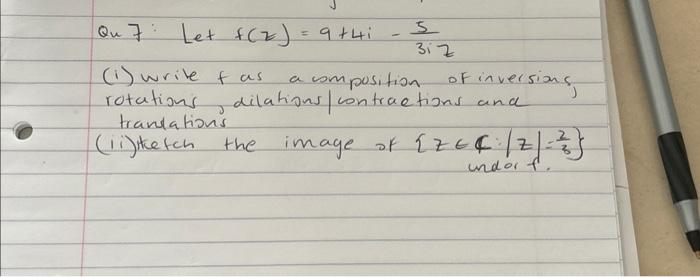 Qu 7: Let f(z) = 9+4i - 5/3iz
(i) write f as a composition of inversions,
rotations, dilations/contractions and
translations
(ii) sketch the image of {z ∈ ℂ: |z| = 2/3}
under f.